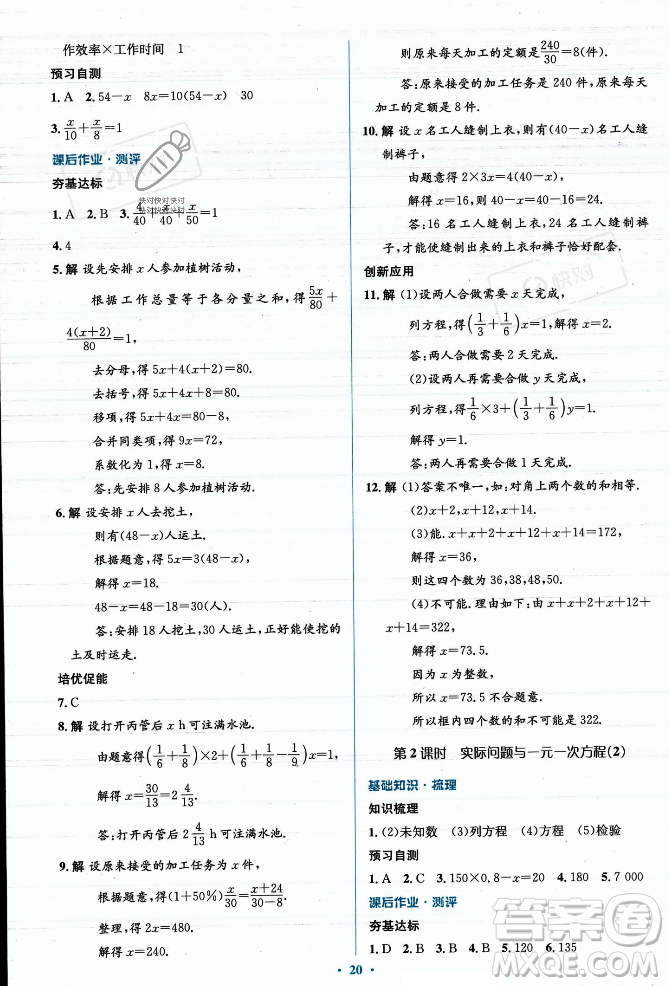 作效率×工作时间 1
预习自测
1.A 2.54-x 8x=10(54-x) 30
3.x/10+x/8=1
课后作业·测评
夯基达标
1.A 2.B 3.4/40+x/40+x/50=1
4.4
5.解 设先安排 x 人参加植树活动,
根据工作总量等于各分量之和,得 5x/80+
4(x+2)/80=1,
去分母,得 5x+4(x+2)=80.
去括号,得 5x+4x+8=80.
移项,得 5x+4x=80-8.
合并同类项,得 9x=72,
系数化为 1,得 x=8.
答:先安排 8 人参加植树活动.
6.解 设安排 x 人挖土,
则有(48-x)人运土.
根据题意,得 5x=3(48-x),
解得 x=18.
48-x=48-18=30.
答:安排 18 人挖土,30 人运土,正好能使挖的
土及时运走.
培优促能
7.C
8.解 设打开丙管后 x h 可注满水池.
由题意得(1/6+1/8)(x+2)-1/9x=1,
解得 x=30/13=2 4/13.
答:打开丙管后 2 4/13 h 可注满水池.
9.解 设原来接受的加工任务为 x 件.
根据题意,得(1+50%)x/30=(x+24)/30-4.
整理,得 2x=480.
解得 x=240.
则原来每天加工的定额是 240/30=8(件).
答:原来接受的加工任务是 240 件,原来每天
加工的定额是 8 件.
10.解 设 x 名工人缝制上衣,则有(40-x)名工人缝
制裤子,
由题意得 2×3x=4(40-x),
解得 x=16.
答:16 名工人缝制上衣,24 名工人缝制裤
子,才能使缝制出来的上衣和裤子恰好配套.
创新应用
11.解 (1)设两人合做需要 x 天完成,
列方程,得(1/3+1/6)x=1,解得 x=2.
答:两人合做需要 2 天完成.
(2)设两人再合做需要 y 天完成,
列方程,得 1/6×3+(1/3+1/6)y=1.
解得 y=1.
答:两人再需要合做 1 天完成.
12.解 (1)答案不唯一,如:对角上两个数的和相等.
(2)x+2,x+12,x+14.
(3)能.x+x+2+x+12+x+14=172,
解得 x=36,
则这四个数是 36,38,48,50.
(4)不可能.理由:x+(x+2)+(x+12)+
x+14=322,
解得 x=73.5.
因为 x 为整数,
所以 x=73.5 不合题意.
所以框内四个数的和不可能是 322.
第 2 课时 实际问题与一元一次方程(2)
基础知识·梳理
知识梳理
1.(2)未知数 (3)列方程 (4)方程 (5)检验
预习自测
1.A 2.C 3.150×0.8-x=20 4.180 5.7 000
课后作业·测评
夯基达标
1.D 2.B 3.B 4.B 5.120 6.135
20
快对快对快对
快对快对快对
快对
答案圈